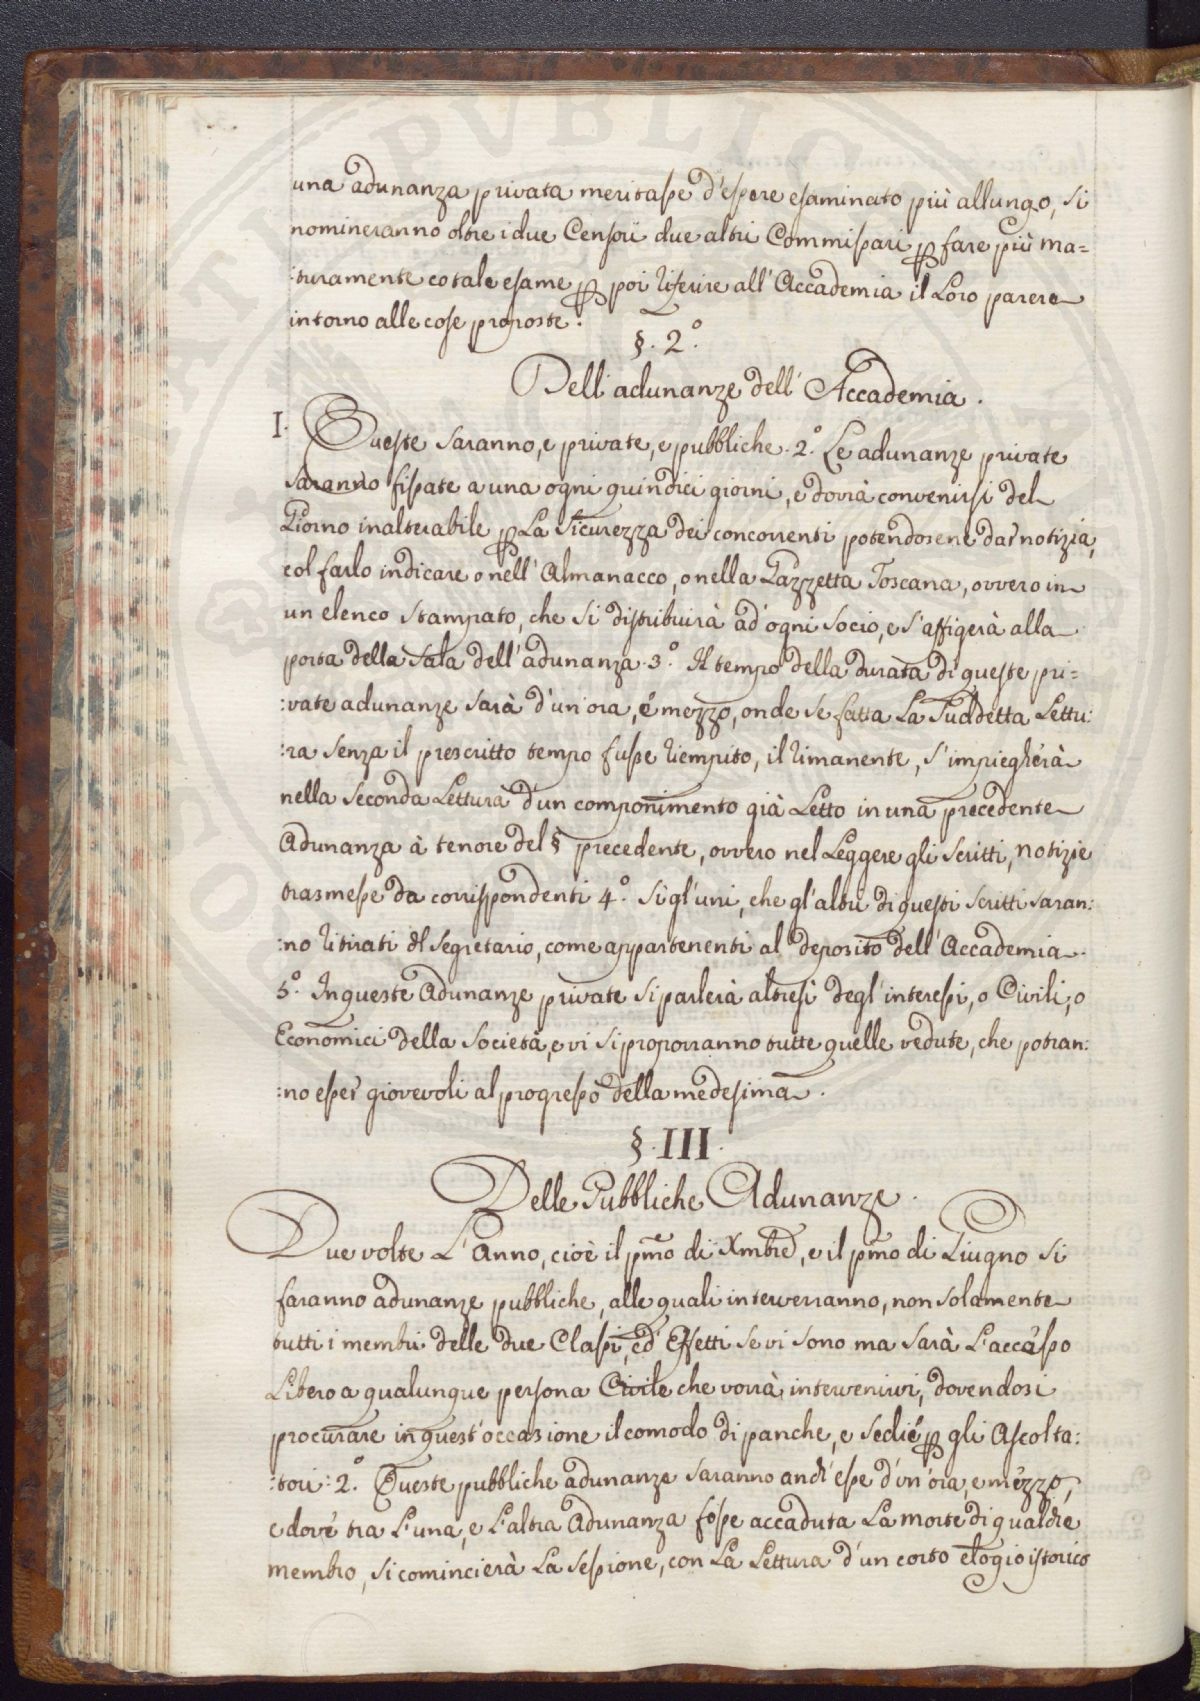 una adunanza privata meritasse d'essere esaminato più allungo, si
nomineranno oltre i due Censori due altri Commissari p fare più ma=
:turamente cotale esame p poi riferire all' Accademia il Loro parere
intorno alle cose proposte.
§. 2.º
Dell' adunanze dell' Accademia.
I. Queste saranno, e private, e pubbliche. 2.º Le adunanze private
saranno fissate a una ogni quindici giorni, e dovrà convenirsi del
Giorno inalterabile p La Sicurezza dei concorrenti potendosene dar notizia,
col farlo indicare o nell' Almanacco, o nella Gazzetta Toscana, ovvero in
un elenco stampato, che si distribuirà ad ogni socio, e s'affigerà alla
porta della Sala dell' adunanza. 3.º Il tempo della durata di queste pri=
:vate adunanze sarà d'un ora, é mezzo, onde se fatta La Suddetta Lettu:
:ra senza il prescritto tempo fusse riempito, il rimanente, s'impiegherà
nella seconda Lettura d'un componimento già Letto in una precedente
Adunanza à tenore del § precedente, ovvero nel Leggere gli scritti, notizie
trasmesse da corrispondenti 4.º Si gl'uni, che gl'altri di questi scritti saran:
:no ritirati dl Segretario, come appartenenti al deposito dell' Accademia.
5.º In queste Adunanze private si parlerà altresì degl' interessi, o Civili, o
Economici della Società, e vi si proporranno tutte quelle vedute, che potran:
:no esser giovevoli al progresso della medesima.
§. III.
Delle Pubbliche Adunanze.
Due volte L'Anno, cioè il pmo di Xmbre, e il pmo di Giugno si
faranno adunanze pubbliche, alle quali interverranno, non solamente
tutti i membri delle due Classi, ed Eletti se vi sono ma sarà L'accesso
Libero a qualunque persona Civile che vorrà intervenirvi, dovendosi
procurare in quest' occasione il comodo di panche, e sedie p gli Ascolta:
:tori: 2.º Queste pubbliche adunanze saranno anch' esse d'un' ora, e mezzo,
e dove tra L'una, e L'altra Adunanza fosse accaduta La morte di qualche
membro, si comincierà La Sessione, con La Lettura d'un corto elogio istorico